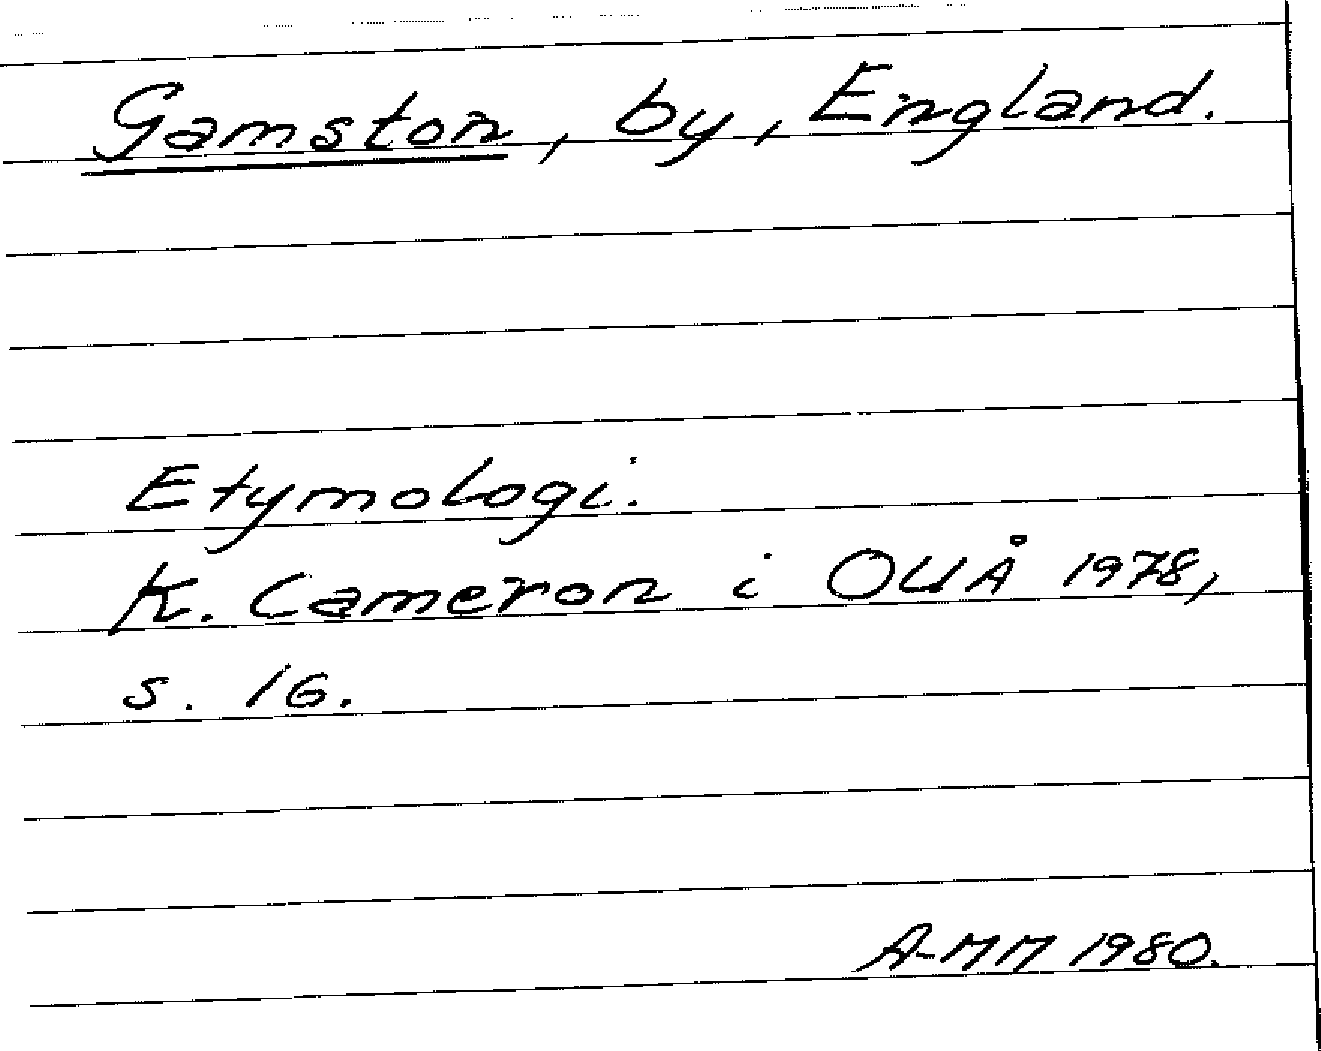 Gamston, by, England.
Etymologi.
K. Cameron i OUÅ 1978,
s. 16.
A-MM 1980.